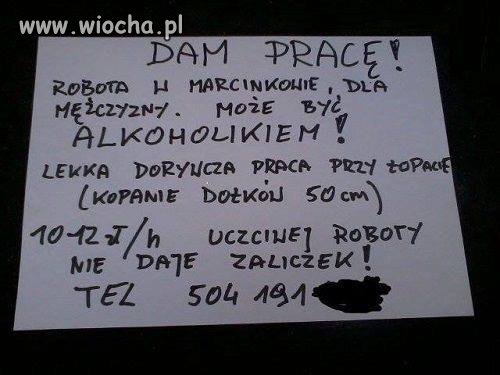 www.wiocha.pl
DAM PRACĘ!
ROBOTA W MARCINKOWIE, DLA
MĘŻCZYZNY. MOŻE BYĆ
ALKOHOLIKIEM!
LEKKA DORYWCZA PRACA PRZY ŁOPACIE
(KOPANIE DOŁKÓW 50 cm)
10-12 zł/h UCZCIWEJ ROBOTY
NIE DAJE ZALICZEK!
TEL 504 191